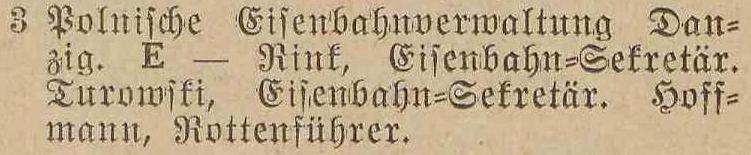 3 Polnische Eisenbahnverwaltung Dan=
zig. E — Rink, Eisenbahn=Sekretär.
Turowski, Eisenbahn=Sekretär. Hoff=
mann, Rottenführer.